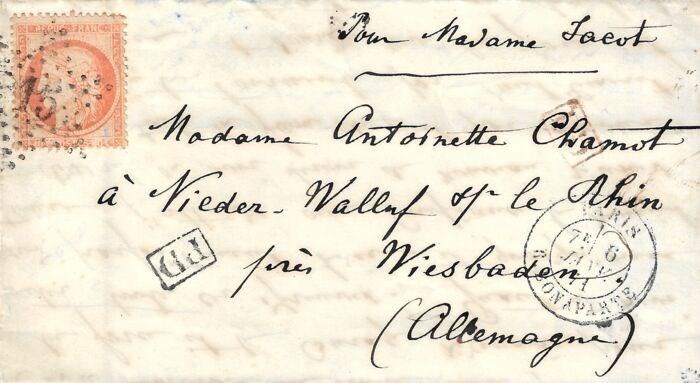 REPUB. FRANC.
15
Pour Madame Jacot
Madame Antoinette Chamot
à Nieder-Walluf s/r le Rhin
près Wiesbaden
(Allemagne)
PD
PARIS
7E 6
JANV.
71
R. BONAPARTE